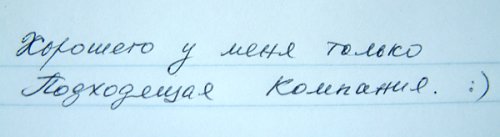 Хорошего у меня только
Подходящая Компания. :)